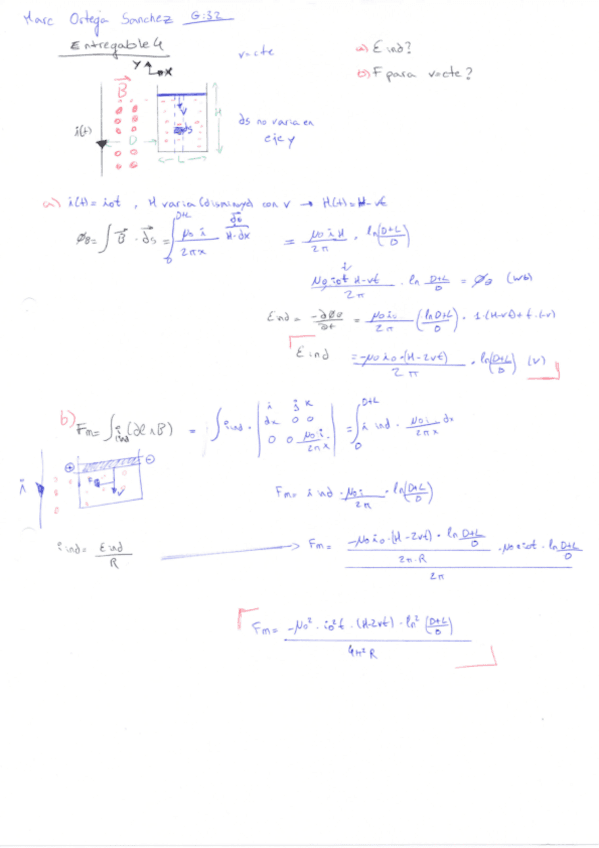 Marc Ortega Sanchez G:32
Entregable 4
v=cte
a) Eind?
b) F para v=cte?
Y
X
B
i(t)
D
v
ds
H
L
ds no varia en
eje y
a) i(t) = i₀t , H varia (disminuye) con v → H(t) = H-vt
ϕB = ∫ B · ds = ∫ D D+L μ₀ i / 2πx H·dx ds = μ₀ i H / 2π · ln(D+L / D)
i
μ₀ i₀t H-vt / 2π · ln D+L / D = ϕB (wb)
Eind = -∂ϕB / ∂t = μ₀ i₀ / 2π (ln D+L / D) · 1(H-vt) + t·(-v)
Eind = -μ₀ i₀ · (H-2vt) / 2π · ln(D+L / D) (V)
b) Fm = ∫ i ind (dl ∧ B) = ∫ i ind · | i j k dx 0 0 0 0 μ₀ i / 2πx | = ∫ D D+L i ind · μ₀ i / 2πx dx
i
v
Fm = i ind · μ₀ i / 2π · ln(D+L / D)
i ind = Eind / R → Fm = -μ₀ i₀ · (H-2vt) · ln D+L / D / 2π·R · μ₀ · i₀t · ln D+L / D / 2π
Fm = -μ₀² · i₀² t · (H-2vt) · ln² (D+L / D) / 4π² R